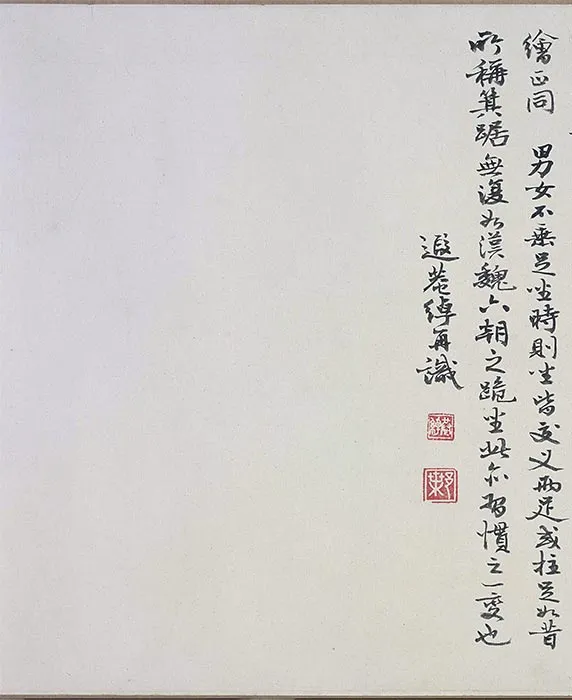 繪正同　男女不垂足坐時則坐皆交叉兩足或柱足如昔
所稱箕踞無復如漢魏六朝之跪坐此亦習慣之一變也
遐菴綽再識